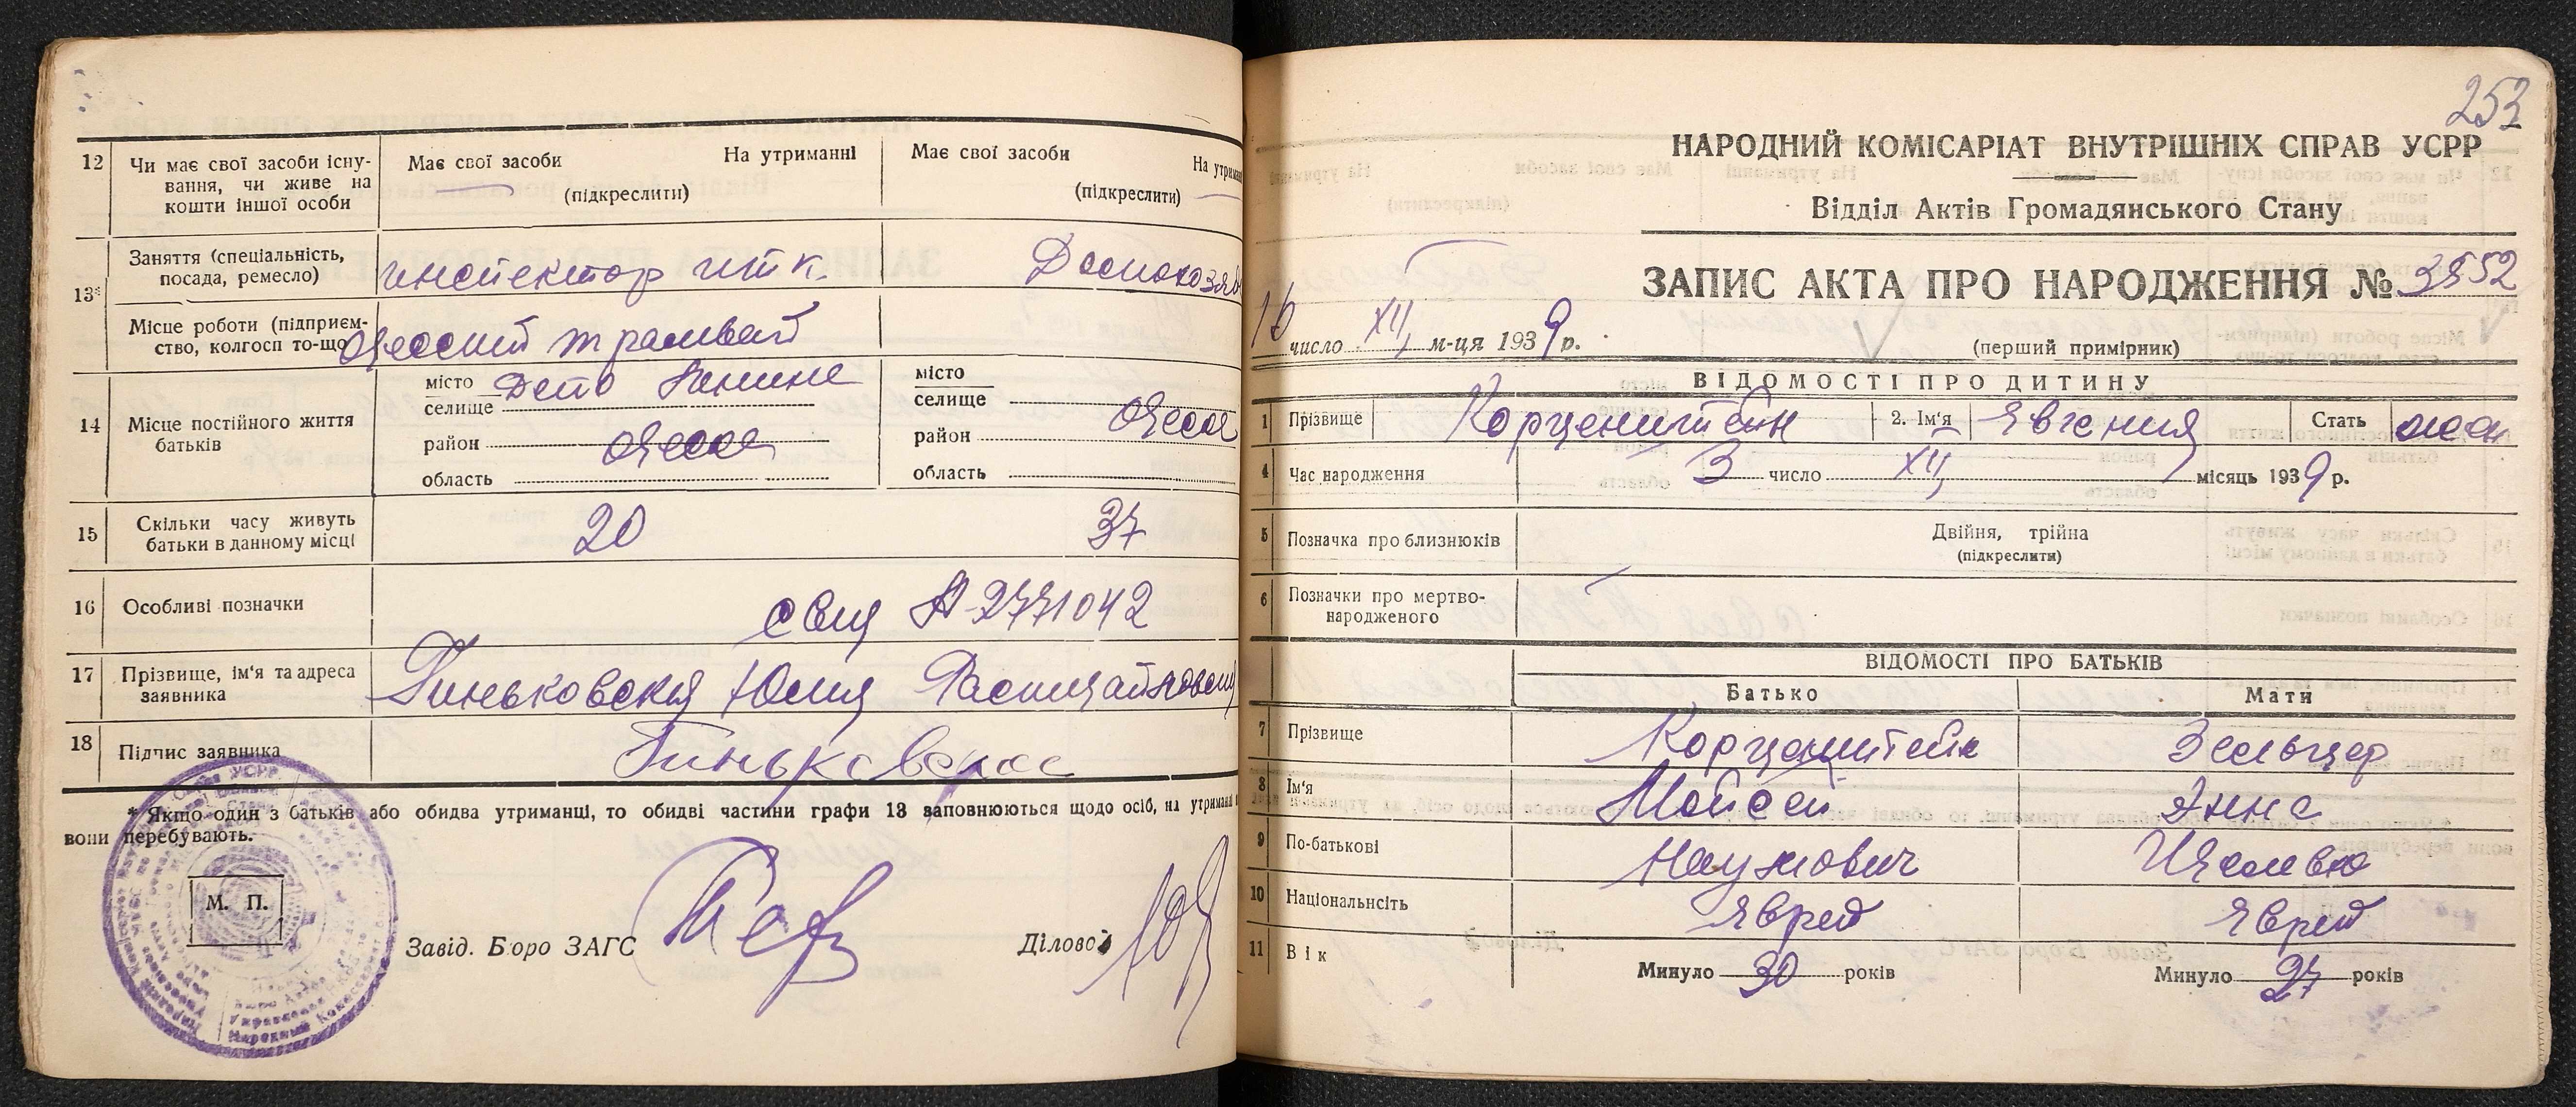 12 Чи має свої засоби існу-
вання, чи живе на
кошти іншої особи
Має свої засоби На утриманні
(підкреслити)
Має свої засоби На утриман
(підкреслити)
13*
Заняття (спеціальність,
посада, ремесло)
инспектор Домохозяй
Місце роботи (підприєм-
ство, колгосп то-що
Одесский трамвай
14 Місце постійного життя
батьків
місто Депо Ленина
селище
район Одесса
область
місто
селище Одесса
район
область
15 Скільки часу живуть
батьки в данному місці
20 37
16 Особливі позначки
А-2771042
17 Прізвище, ім'я та адреса
заявника
Гиньковская Юлия
18 Підпис заявника
Гиньковская
* Якщо один з батьків або обидва утриманці, то обидві частини графи 13 заповнюються щодо осіб, на утриманні
вони перебувають.
М. П.
Завід. Бюро ЗАГС
Діловод
253
НАРОДНИЙ КОМІСАРІАТ ВНУТРІШНІХ СПРАВ УСРР
Відділ Актів Громадянського Стану
ЗАПИС АКТА ПРО НАРОДЖЕННЯ № 3552
16 число XII м-ця 1939 р.
(перший примірник)
ВІДОМОСТІ ПРО ДИТИНУ
1 Прізвище Корценштейн 2. Ім'я Евгения Стать жен
4 Час народження 3 число XII місяць 1939 р.
5 Позначка про близнюків Двійня, трійна
(підкреслити)
6 Позначки про мертво-
народженого
ВІДОМОСТІ ПРО БАТЬКІВ
Батько Мати
7 Прізвище Корценштейн Зельцер
8 Ім'я Мойсей Энна
9 По-батькові Наумович
10 Національнсіть Еврей Еврей
11 Вік Минуло 30 років Минуло 27 років